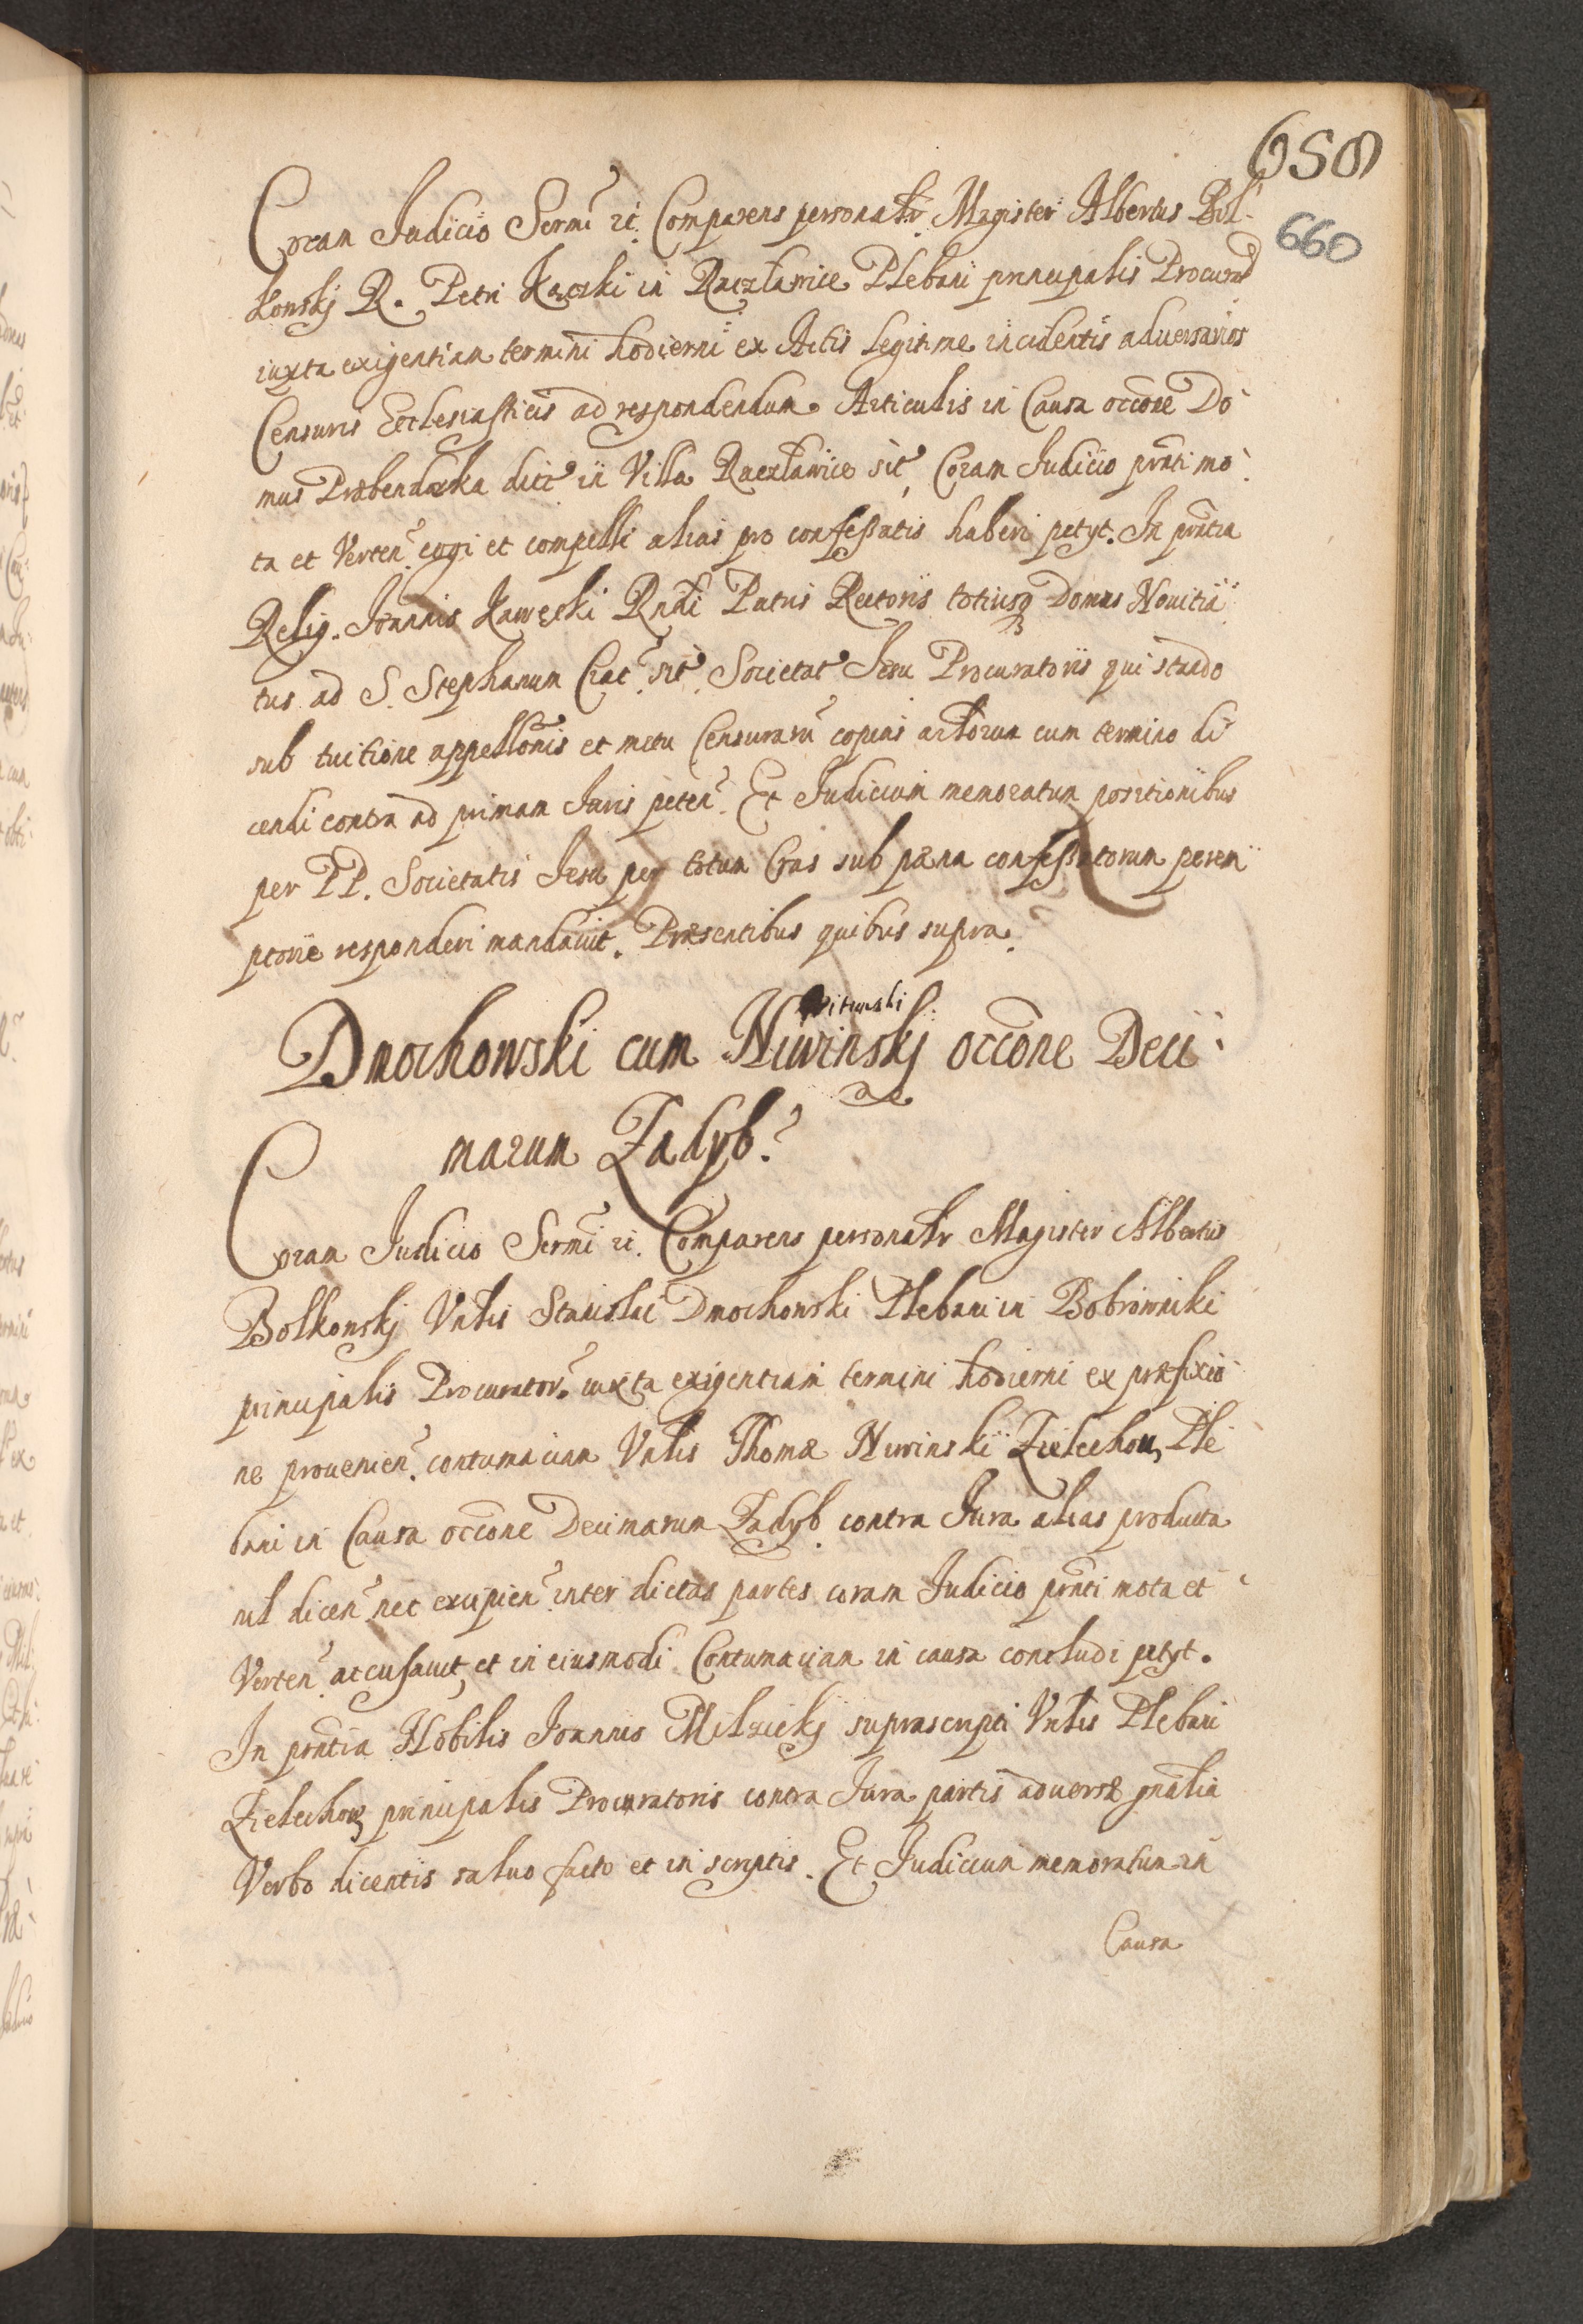 658
660
Coram Judicio Sermi rc. Comparens personalr Magister Albertus Bol-
konskj R. Petri Kączki in Raczławice Plebani principalis Procurad
iuxta exigentiam termini hodierni ex Actis legitime incidentis adversarios
Censuris Ecclesiasticis ad respondendum Articulis in Causa occone Do
mus Præbendarska dict in Villa Raczławice sit, Coram Judicio prnti mo
ta et Verten cogi et compelli alias pro confessatis haberi petyt. In prntia
Relig. Joannis Kawęcki Rndi Patris Rectoris totiusq Domus Novitia
tus ad S. Stephanum Crac. sit. Societat Jesu Procuratoris qui stando
sub tuitione appellonis et metu Censurarū copias artlorum cum termino di
cendi contra ad primam Juris peten. Et Judicium memoratum positionibus
per PP. Societatis Jesu per totum Cras sub pæna confessatorum perem
ptorie responderi mandavit. Præsentibus quibus supra.
Witunski
Dmochowski cum Niwinskj occone Deci
marum Zadyb.
Coram Judicio Sermi rc. Comparens personalr Magister Albertus
Bolkonskj Vnlis Stanislai Dmochowski Plebani in Bobrowniki
principalis Procurator. iuxta exigentiam termini hodierni ex præfixio
ne provenien. contumaciam Vnlis Thomæ Niwinski Zielechou, Ple
bani in Causa occone Decimarum Zadyb. contra Jura alias producta
nil dicen nec excipien inter dictas partes coram Judicio prnti mota et
Verten accusavit, et in eiusmodi Contumaciam in causa concludi petyt.
In prntia Nobilis Joannis Milzickj suprascripti Vnlis Plebani
Zielechow, principalis Procuratoris contra Jura partis adversæ gnalia
Verbo dicentis salvo facto et in scriptis. Et Judicium memoratum in
Causa